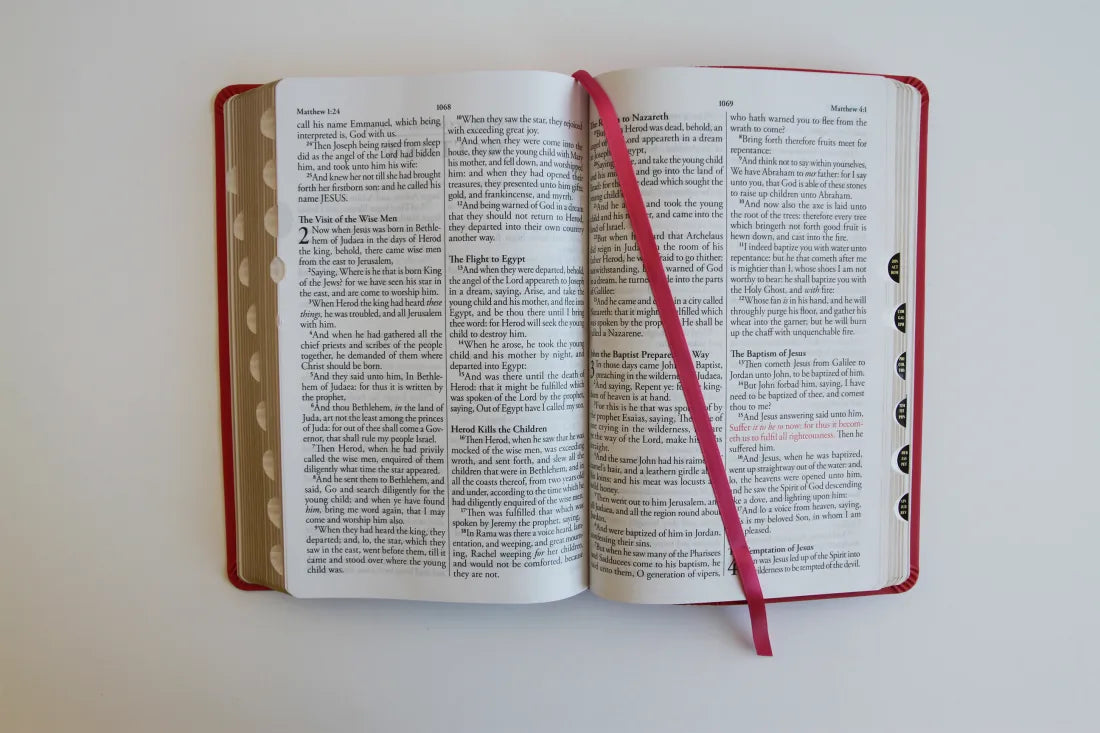 Matthew 1:24
1068
call his name Emmanuel, which being
interpreted is, God with us.
24Then Joseph being raised from sleep
did as the angel of the Lord had bidden
him, and took unto him his wife:
25And knew her not till she had brought
forth her firstborn son: and he called his
name JESUS.
The Visit of the Wise Men
2 Now when Jesus was born in Bethle-
hem of Judaea in the days of Herod
the king, behold, there came wise men
from the east to Jerusalem,
2Saying, Where is he that is born King
of the Jews? for we have seen his star in
the east, and are come to worship him.
3When Herod the king had heard these
things, he was troubled, and all Jerusalem
with him.
4And when he had gathered all the
chief priests and scribes of the people
together, he demanded of them where
Christ should be born.
5And they said unto him, In Bethle-
hem of Judaea: for thus it is written by
the prophet,
6And thou Bethlehem, in the land of
Juda, art not the least among the princes
of Juda: for out of thee shall come a Gov-
ernor, that shall rule my people Israel.
7Then Herod, when he had privily
called the wise men, enquired of them
diligently what time the star appeared.
8And he sent them to Bethlehem, and
said, Go and search diligently for the
young child; and when ye have found
him, bring me word again, that I may
come and worship him also.
9When they had heard the king, they
departed; and, lo, the star, which they
saw in the east, went before them, till it
came and stood over where the young
child was.
10When they saw the star, they rejoiced
with exceeding great joy.
11And when they were come into the
house, they saw the young child with Mary
his mother, and fell down, and worshipped
him: and when they had opened their
treasures, they presented unto him gifts;
gold, and frankincense, and myrrh.
12And being warned of God in a dream
that they should not return to Herod,
they departed into their own country
another way.
The Flight to Egypt
13And when they were departed, behold,
the angel of the Lord appeareth to Joseph
in a dream, saying, Arise, and take the
young child and his mother, and flee into
Egypt, and be thou there until I bring
thee word: for Herod will seek the young
child to destroy him.
14When he arose, he took the young
child and his mother by night, and
departed into Egypt:
15And was there until the death of
Herod: that it might be fulfilled which
was spoken of the Lord by the prophet,
saying, Out of Egypt have I called my son.
Herod Kills the Children
16Then Herod, when he saw that he was
mocked of the wise men, was exceeding
wroth, and sent forth, and slew all the
children that were in Bethlehem, and in
all the coasts thereof, from two years old
and under, according to the time which he
had diligently enquired of the wise men.
17Then was fulfilled that which was
spoken by Jeremy the prophet, saying,
18In Rama was there a voice heard, lam-
entation, and weeping, and great mourn-
ing, Rachel weeping for her children,
and would not be comforted, because
they are not.
1069
Matthew 4:1
to Nazareth
Herod was dead, behold, an
Lord appeareth in a dream
Egypt,
and take the young child
and go into the land of
dead which sought the
young child's
And he and took the young
child and his and came into the
land of Israel.
But when heard that Archelaus
did reign in in the room of his
father Herod, he to go thither:
warned of God
in a dream, he turned into the parts
of Galilee:
And he came and in a city called
Nazareth: that it might fulfilled which
was spoken by the He shall be
called a Nazarene.
John the Baptist Prepares Way
3 In those days came John Baptist,
preaching in the wilderness Judaea,
And saying, Repent ye: king-
dom of heaven is at hand.
For this is he that was by
the prophet Esaias, saying, The of
one crying in the wilderness,
the way of the Lord, make his
straight.
And the same John had his raiment
camel's hair, and a leathern girdle
his loins; and his meat was locusts
wild honey.
Then went out to him Jerusalem, and
all Judaea, and all the region round about
Jordan,
And were baptized of him in Jordan,
confessing their sins.
But when he saw many of the Pharisees
and Sadducees come to his baptism, he
said unto them, O generation of vipers,
who hath warned you to flee from the
wrath to come?
8Bring forth therefore fruits meet for
repentance:
9And think not to say within yourselves,
We have Abraham to our father: for I say
unto you, that God is able of these stones
to raise up children unto Abraham.
10And now also the axe is laid unto
the root of the trees: therefore every tree
which bringeth not forth good fruit is
hewn down, and cast into the fire.
11I indeed baptize you with water unto
repentance: but he that cometh after me
is mightier than I, whose shoes I am not
worthy to bear: he shall baptize you with
the Holy Ghost, and with fire:
12Whose fan is in his hand, and he will
throughly purge his floor, and gather his
wheat into the garner; but he will burn
up the chaff with unquenchable fire.
The Baptism of Jesus
13Then cometh Jesus from Galilee to
Jordan unto John, to be baptized of him.
14But John forbad him, saying, I have
need to be baptized of thee, and comest
thou to me?
15And Jesus answering said unto him,
Suffer it to be so now: for thus it becom-
eth us to fulfil all righteousness. Then he
suffered him.
16And Jesus, when he was baptized,
went up straightway out of the water: and,
lo, the heavens were opened unto him,
and he saw the Spirit of God descending
like a dove, and lighting upon him:
And lo a voice from heaven, saying,
is my beloved Son, in whom I am
pleased.
Temptation of Jesus
4 was Jesus led up of the Spirit into
wilderness to be tempted of the devil.